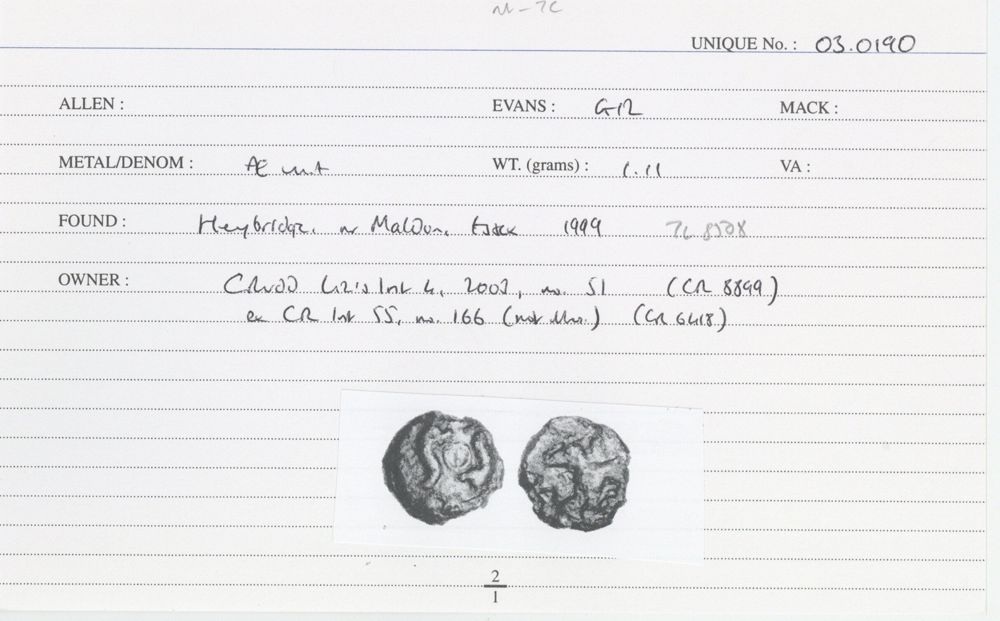 UNIQUE No. : 03.0190
ALLEN : EVANS : MACK :
METAL/DENOM : Æ unit WT. (grams) : 1.11 VA :
FOUND : Heybridge, nr Maldon, Essex 1999 TL 8508
OWNER : list 4, 2003, no. 51 (CR 8899)
ex CR list 55, no. 166 (not illus.) (CR 6418)
2
1